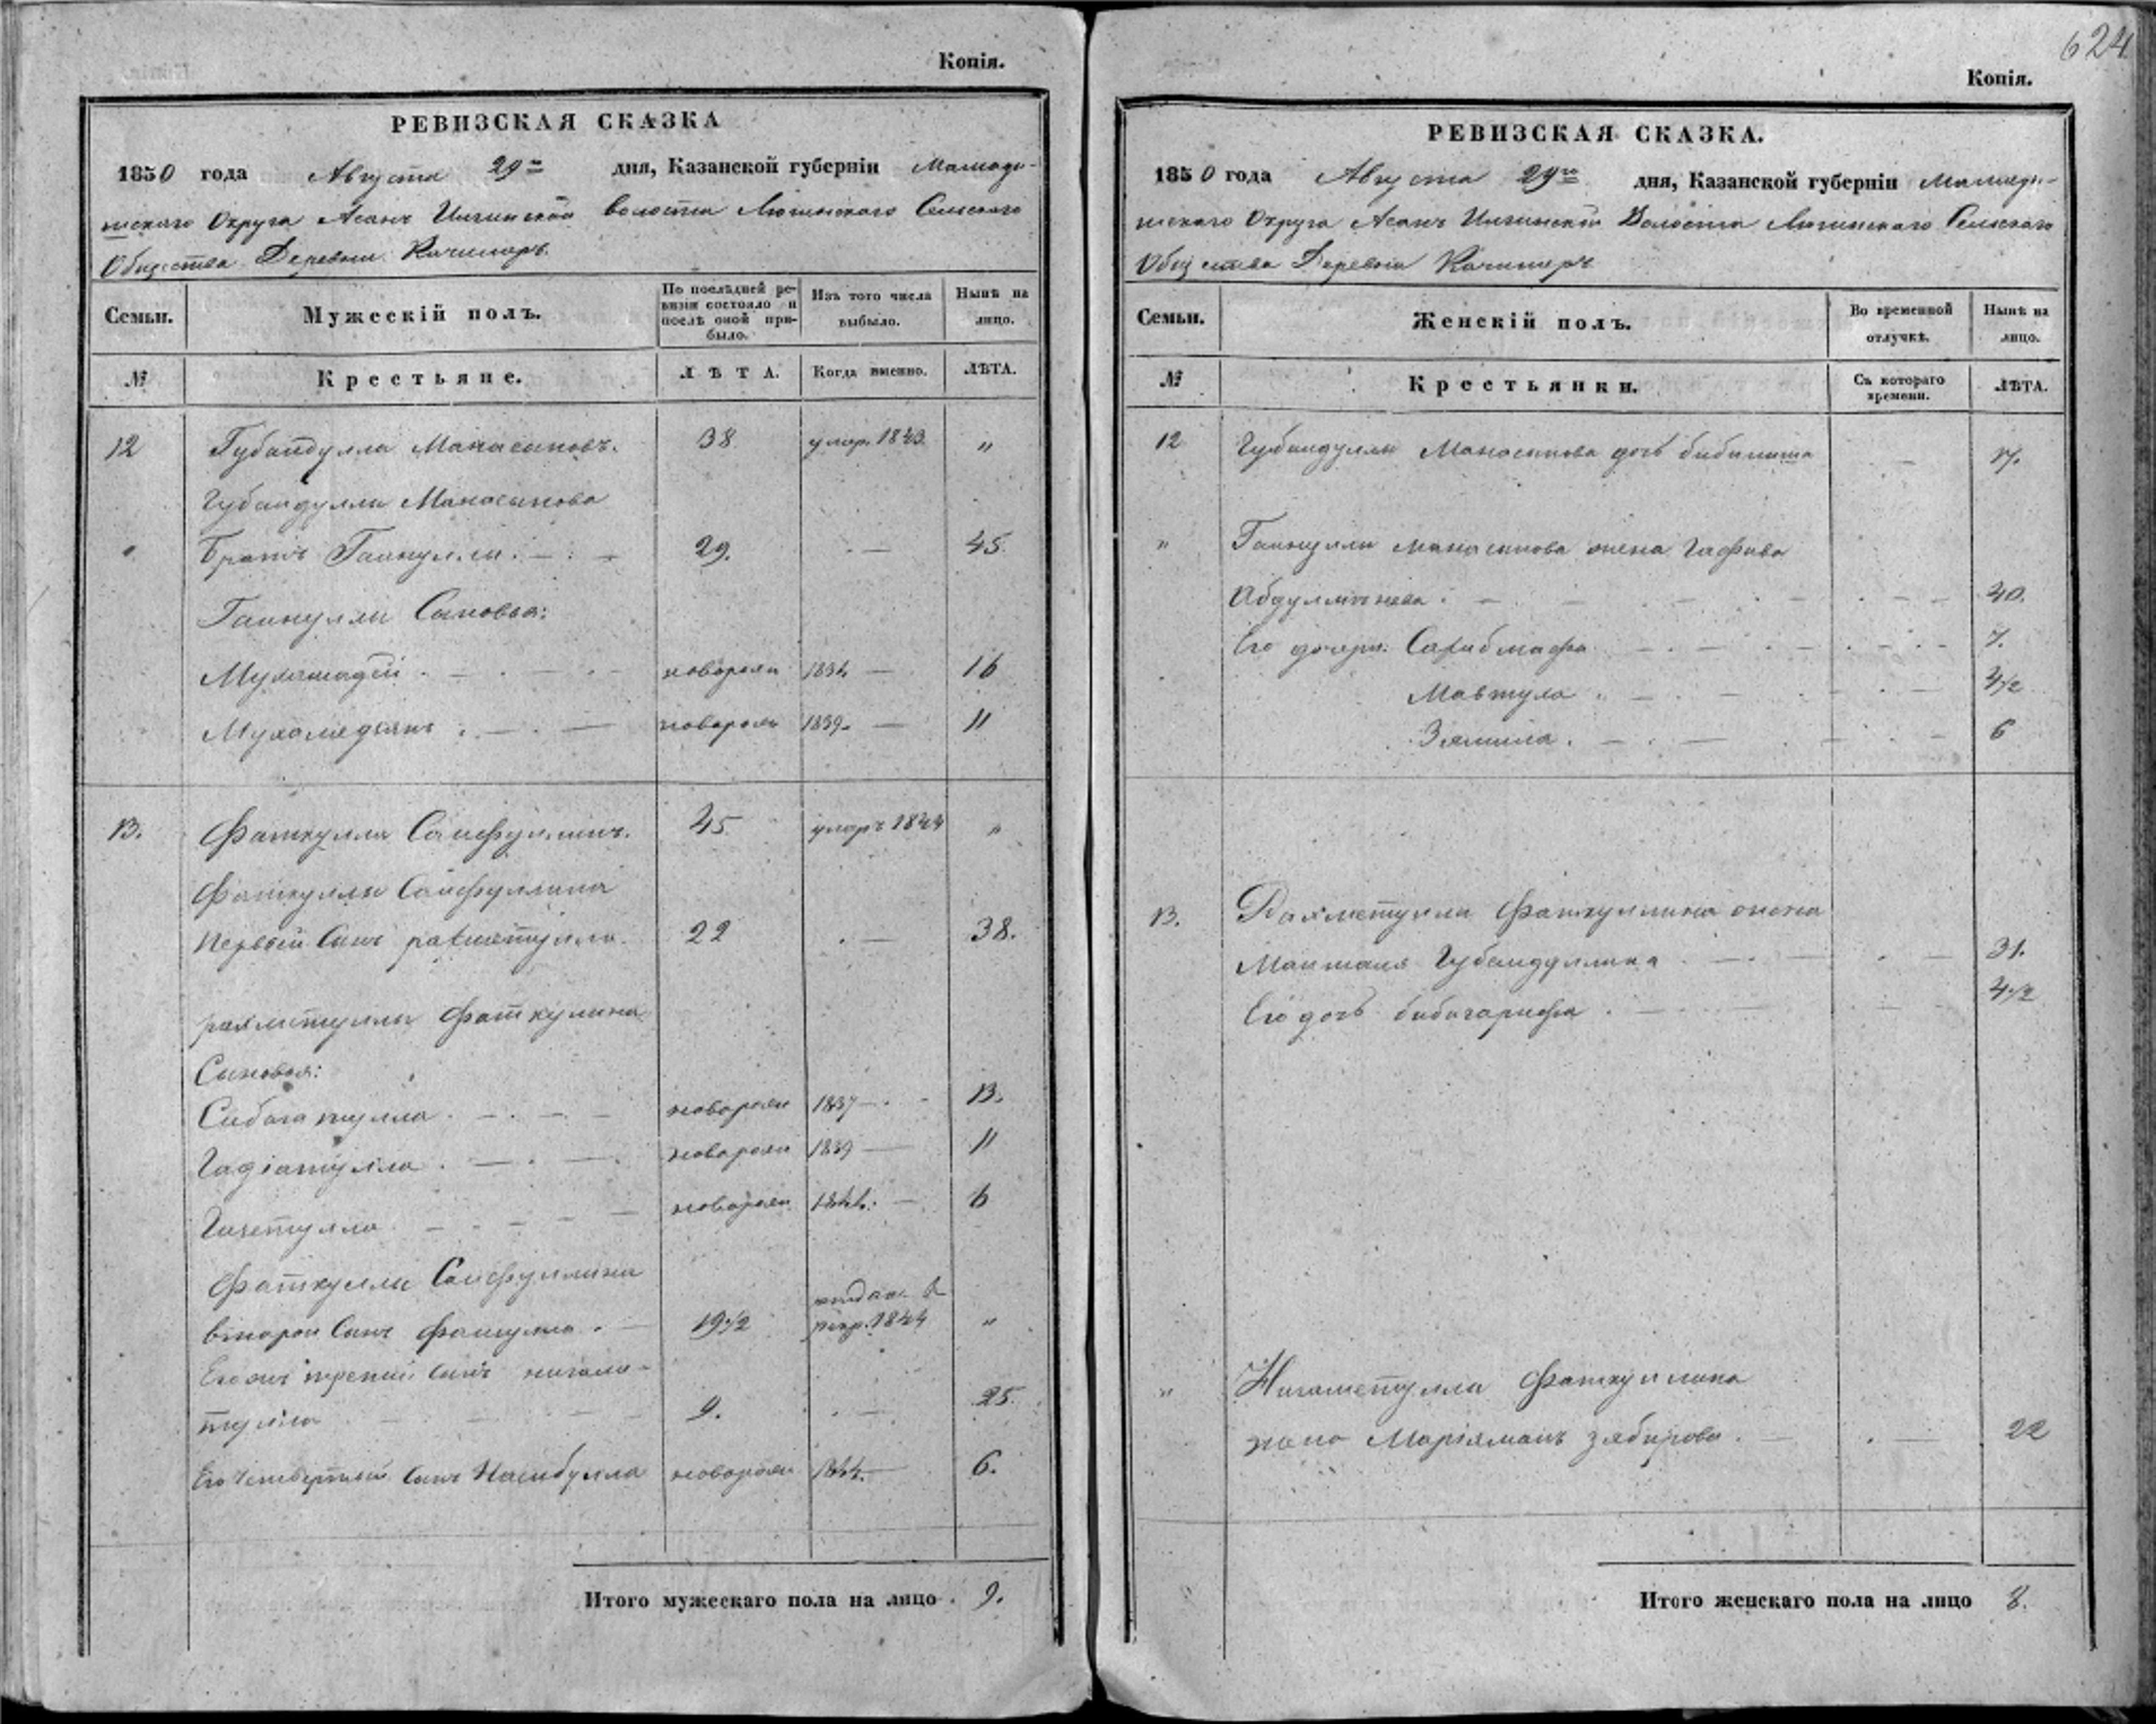 Копія.
РЕВИЗСКАЯ СКАЗКА
1850 года Августа 29го дня, Казанской губерніи Мамады-
шскаго Округа Асанъ Илгинской волости Сельскаго
Общества Деревни Качимиръ
Семьи.
Мужескій полъ.
По послѣдней ре-
визіи состояло и
послѣ оной при-
было.
Изъ того числа
выбыло.
Нынѣ на
лицо.
№
Крестьяне.
ЛѢТА.
Когда именно.
ЛѢТА.
12 Губайдулла Манасыповъ. 38 умер. 1843 "
Губайдуллы Манасыпова
Братъ Гайнулла. 29. — 45
Гайнуллы Сыновья:
Мухамадѣй новорож 1834 — 16
Мухамедьянъ новорож 1839 — 11
13. Фаткулла Сайфуллинъ. 45 умеръ 1844 "
Фаткуллы Сайфуллина
первый сынъ рахметулла. 22 — 38.
рахметуллы Фаткулина
Сыновья:
Сибагатулла новорож 1837 — 13.
Гадіатулла новорож 1839 — 11
Гизетулла новорож 1844. — 6
Фаткуллы Сайфуллина
второй сынъ 19 1/2 отдан в
рекр. 1844 "
Его жъ третій сынъ нигаме-
тулла 9. — 25.
Его четвертый сынъ Насибулла новорож 1844. 6.
Итого мужескаго пола на лицо 9.
624
Копія.
РЕВИЗСКАЯ СКАЗКА.
1850 года Августа 29го дня, Казанской губерніи Мамады-
шскаго Округа Асанъ Илгинской Волости Сельскаго
Общества Деревни Качимиръ
Семьи.
Женскій полъ.
Во временной
отлучкѣ.
Нынѣ на
лицо.
№
Крестьянки.
Съ котораго
времени.
ЛѢТА.
12 Губайдуллы Манасыпова дочь —
" Гайнуллы манасыпова жена
— 40.
Его дочери: — 7.
— 4 1/2
Зямила — 6
13. Рахметуллы Фаткуллина жена
Губайдуллина — 31.
Его дочь бибигарифа — 4 1/2
" Нигаметулла Фаткуллина
жена Маріяманъ зябирова — 22
Итого женскаго пола на лицо 8.